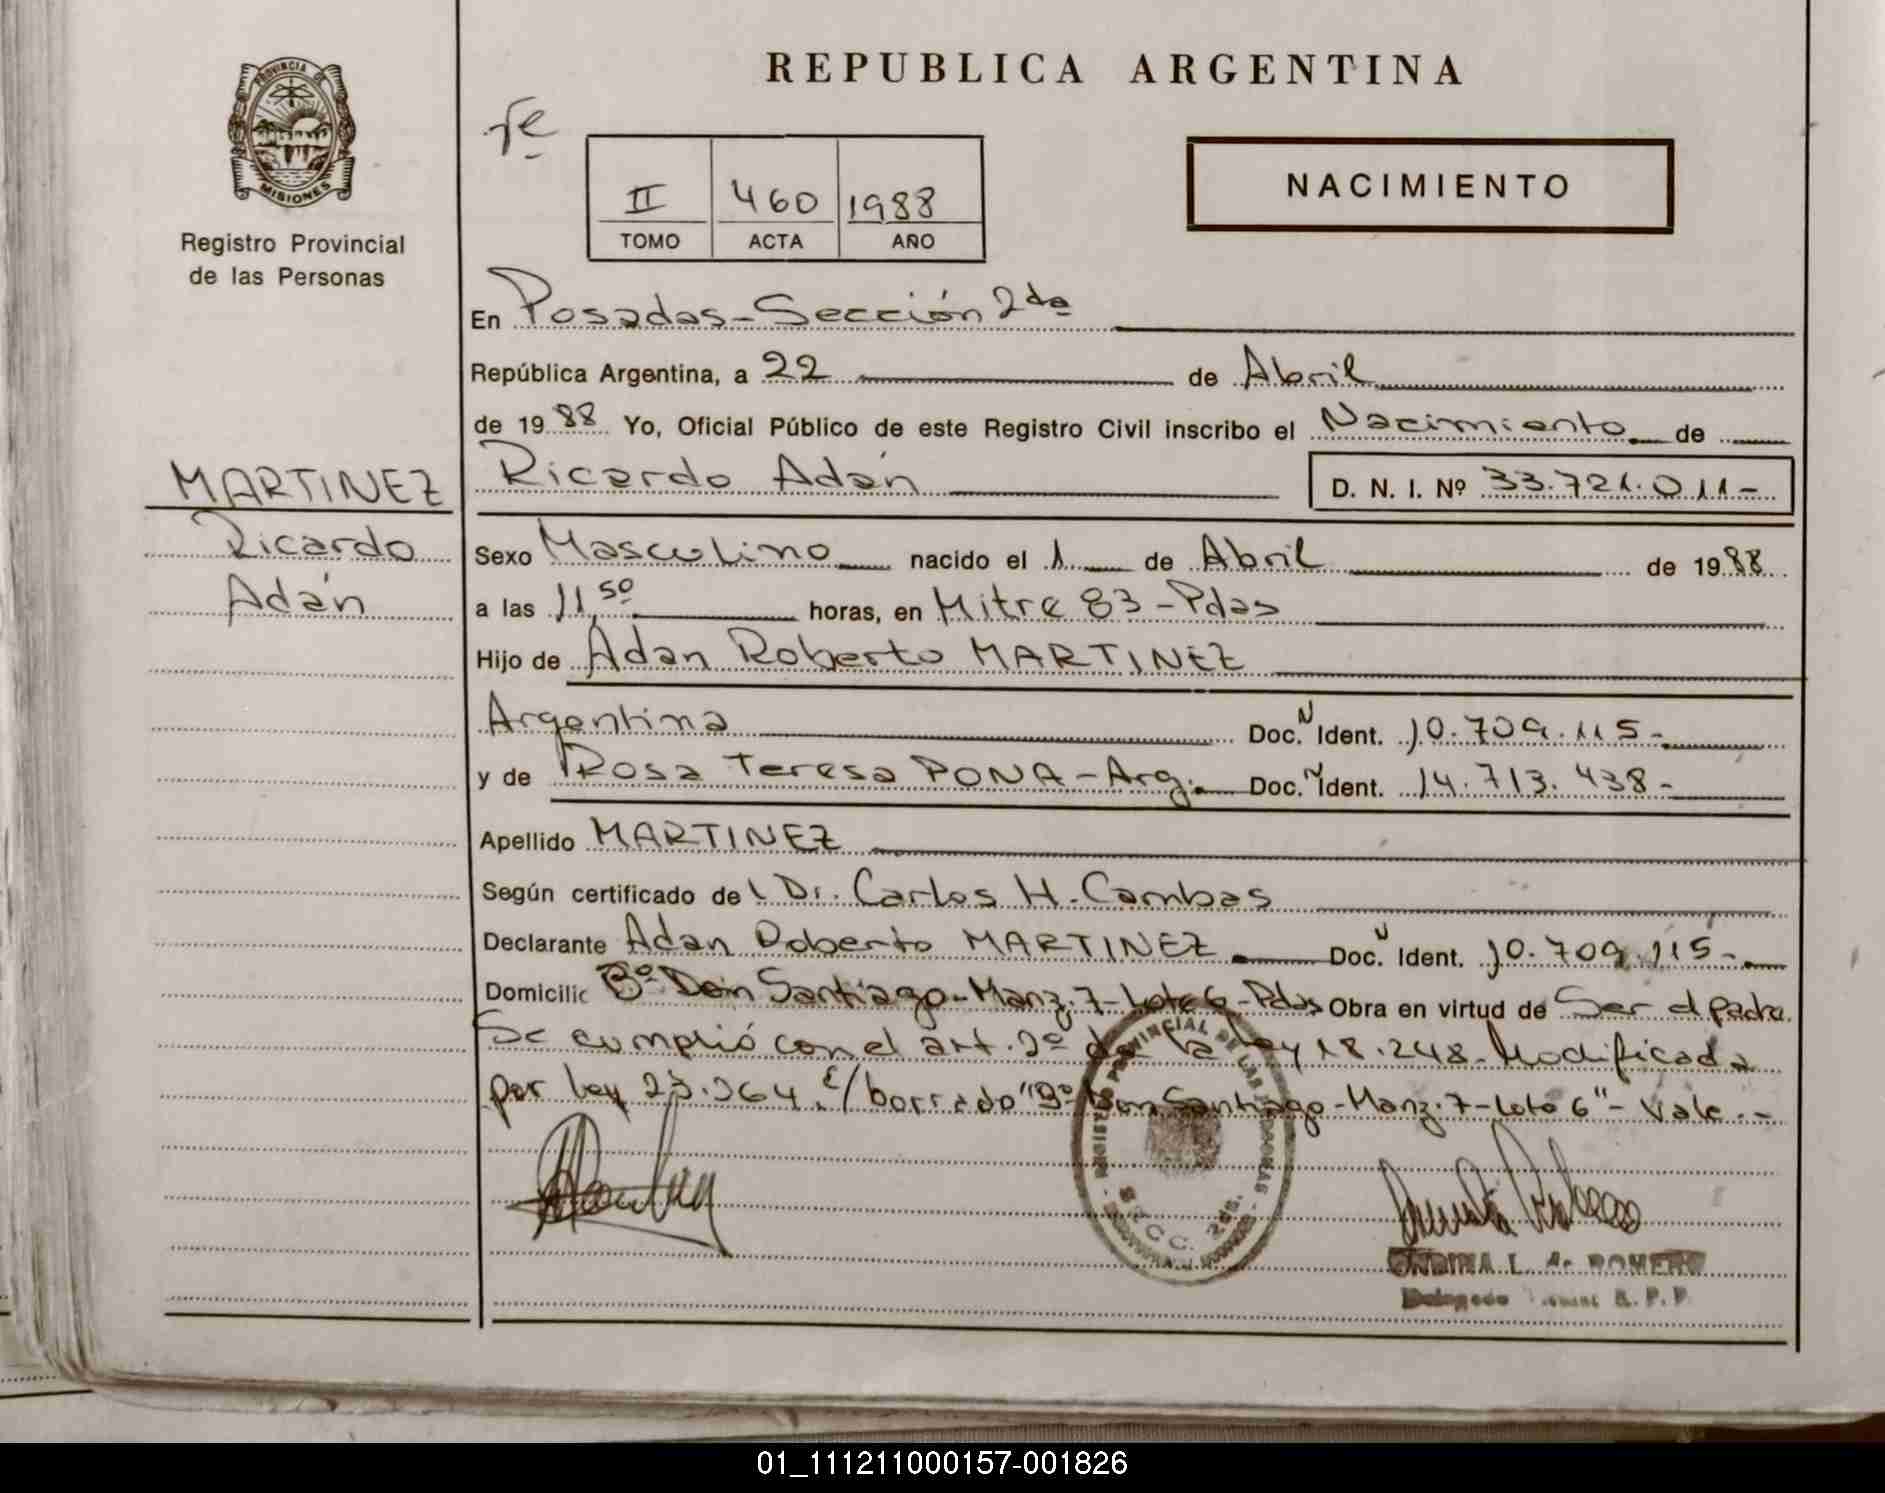 REPUBLICA ARGENTINA
PROVINCIA DE
MISIONES
Registro Provincial
de las Personas
II 460 1988
TOMO ACTA AÑO
NACIMIENTO
En Posadas-Sección 2da
República Argentina, a 22 de Abril
de 1988 Yo, Oficial Público de este Registro Civil inscribo el Nacimiento de
MARTINEZ
Ricardo
Adán
Ricardo Adán D. N. I. Nº 33.721.011-
Sexo Masculino nacido el 1 de Abril de 1988
a las 11,50 horas, en Mitre 83-Pdas
Hijo de Adan Roberto MARTINEZ
Argentina Doc. N Ident. 10.709.115-
y de Rosa Teresa PONA-Arg. Doc. N Ident. 14.713.438-
Apellido MARTINEZ
Según certificado del Dr. Carlos H. Cambas
Declarante Adan Roberto MARTINEZ Doc. N Ident. 10.709.115-
Domicilio Bº Don Santiago-Manz.7-Lote 6-Pdas Obra en virtud de Ser el padre.
Se cumplió con el art. 2º de la ley 18.248-Modificada
por ley 23.264. E/borrado "Bº Don Santiago-Manz.7-Lote 6"- Vale.-
ONDINA L. de ROMERO
R. P. P.
01_111211000157-001826